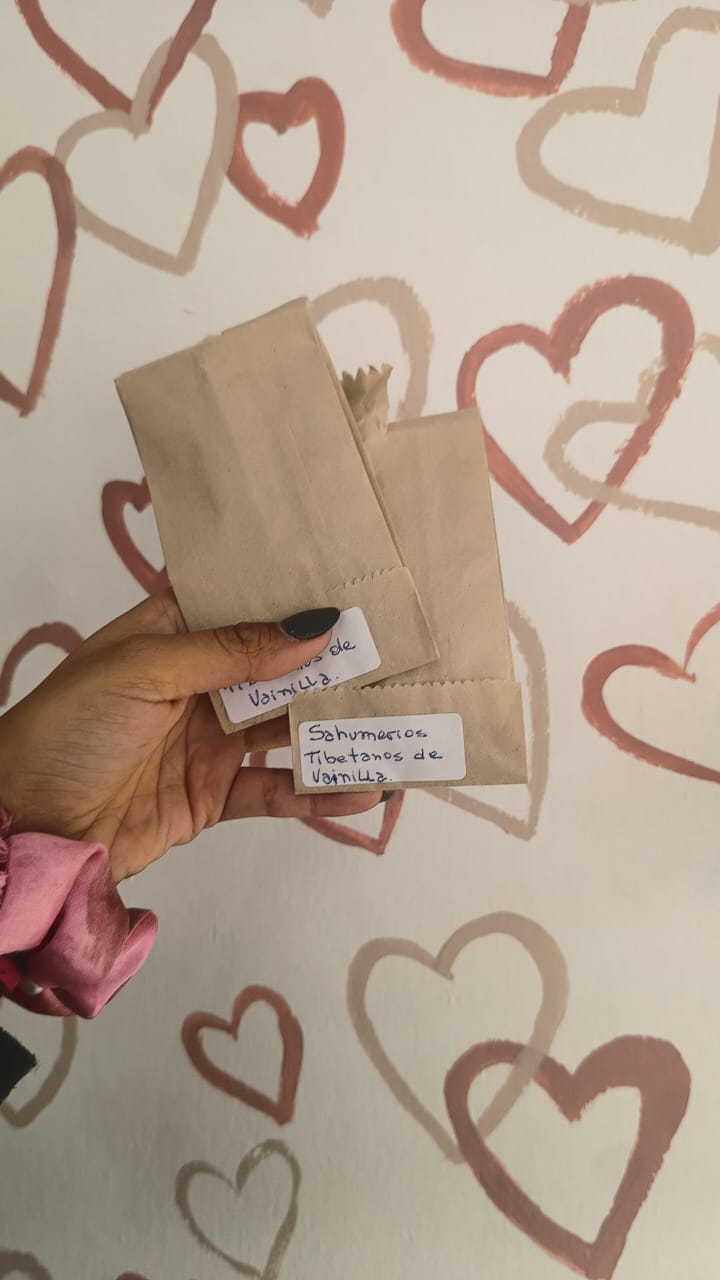 de
Vainilla.
Sahumerios
Tibetanos de
Vainilla.